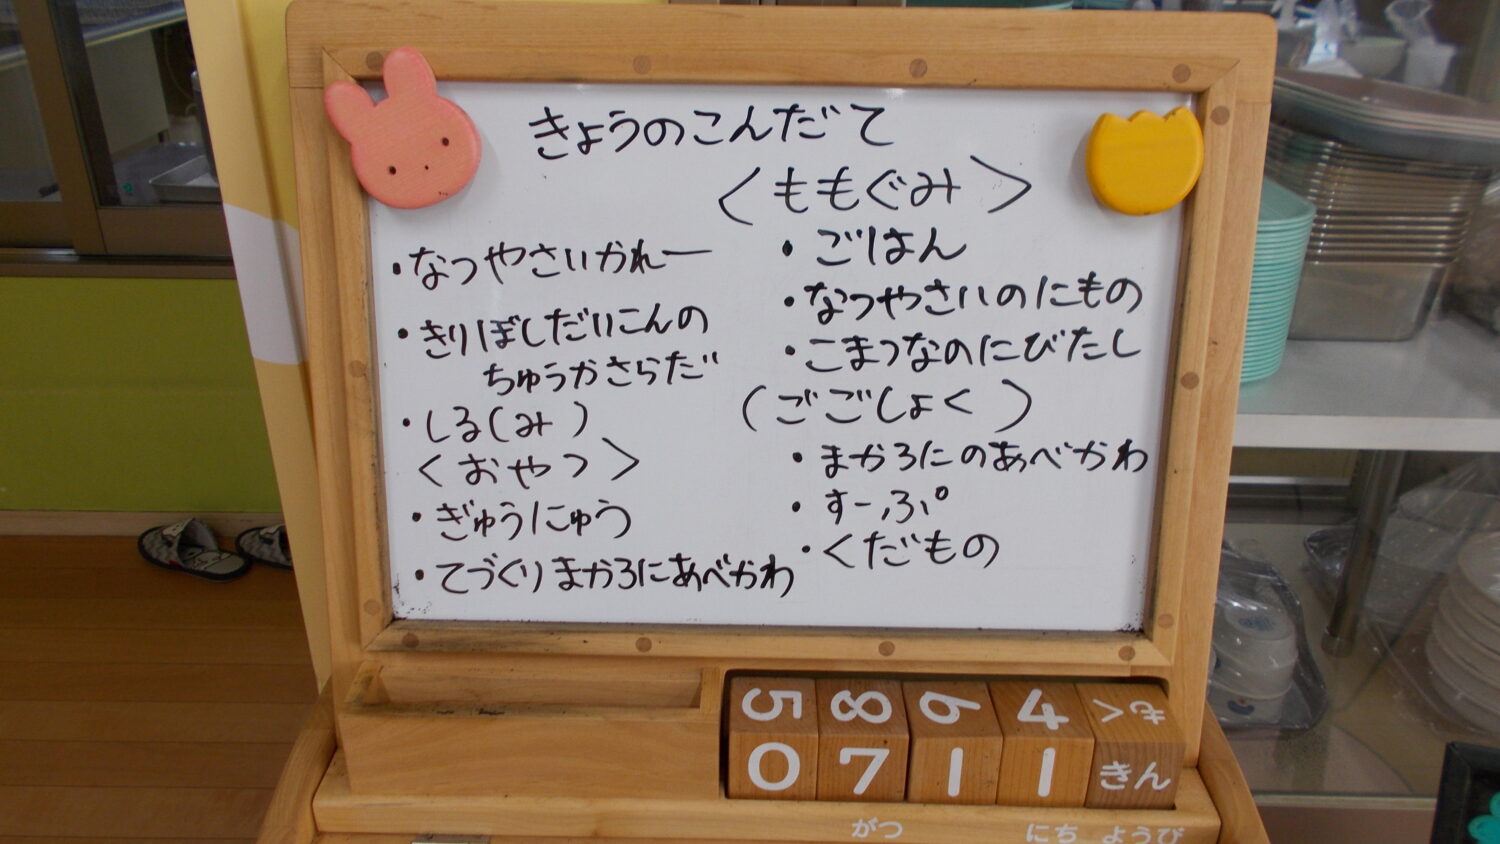 きょうのこんだて
・なつやさいかれー
・きりぼしだいこんの
ちゅうかさらだ
・しる(み)
<おやつ>
・ぎゅうにゅう
・てづくりまかろにあべかわ
<ももぐみ>
・ごはん
・なつやさいのにもの
・こまつなのにびたし
(ごごしょく)
・まかろにのあべかわ
・すーぷ
・くだもの
5 8 6 4 もく
0 7 1 1 きん
がつ にち ようび